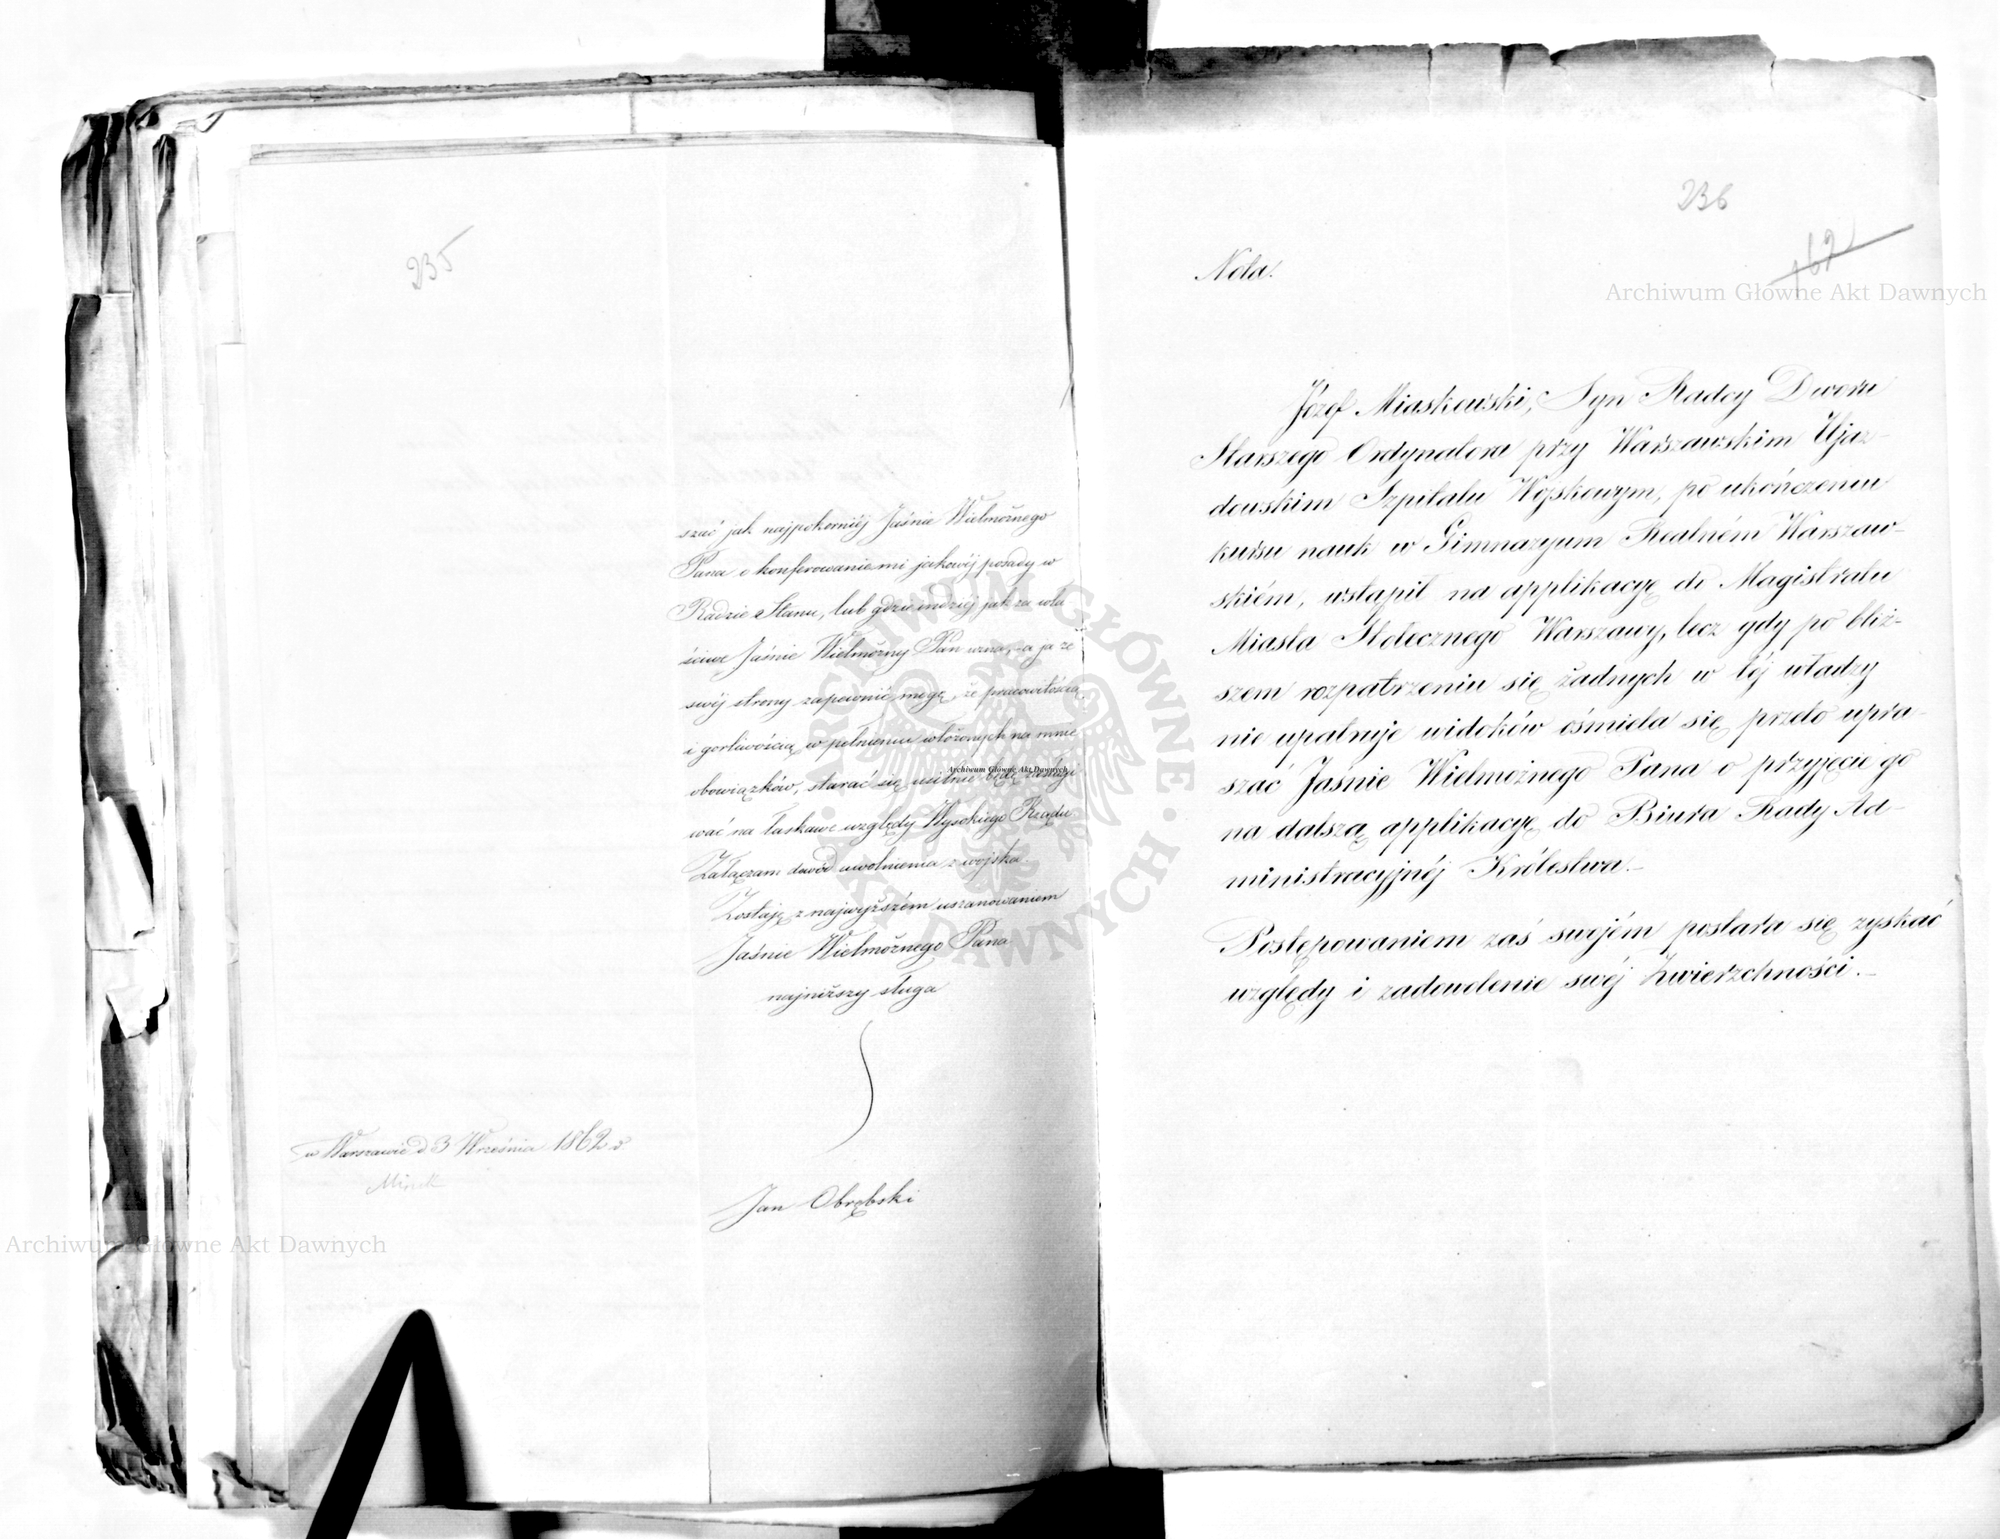 235
szać jak najpokorniéj Jaśnie Wielmożnego
Pana o konferowanie mi jakowéj posady w
Radzie Stanu, lub gdzieindziéj jak za wła
ściwe Jaśnie Wielmożny Pan uzna, - a ja ze
swéj strony zapewnić mogę, że pracowitością
i gorliwością w pełnieniu włożonych na mnie
obowiązków, starać się usilnie będę zasługi
wać na łaskawe względy Wysokiego Rządu
Załączam dowód uwolnienia z wojska.
Zostaję z najwyższém uszanowaniem
Jaśnie Wielmożnego Pana
najniższy sługa
w Warszawie d 3 Września 1862 r
Jan Obrębski
236
162
Nota.
Józef Miaskowski, Syn Radcy Dworu
Starszego Ordynatora przy Warszawskim Ujaz-
dowskim Szpitalu Wojskowym, po ukończeniu
kursu nauk w Gimnazyum Realném Warszaw-
skiém, wstąpił na applikacyę do Magistratu
Miasta Stołecznego Warszawy, lecz gdy po bliż-
szem rozpatrzeniu się żadnych w téj władzy
nie upatruje widoków ośmiela się przeto upra-
szać Jaśnie Wielmożnego Pana o przyjęcie go
na dalszą applikacyę do Biura Rady Ad-
ministracyjnéj Królestwa.-
Postępowaniem zaś swojém postara się zyskać
względy i zadowolenie swéj Zwierzchności.-
Archiwum Główne Akt Dawnych
Archiwum Główne Akt Dawnych
Archiwum Główne Akt Dawnych
ARCHIWUM GŁÓWNE AKT DAWNYCH